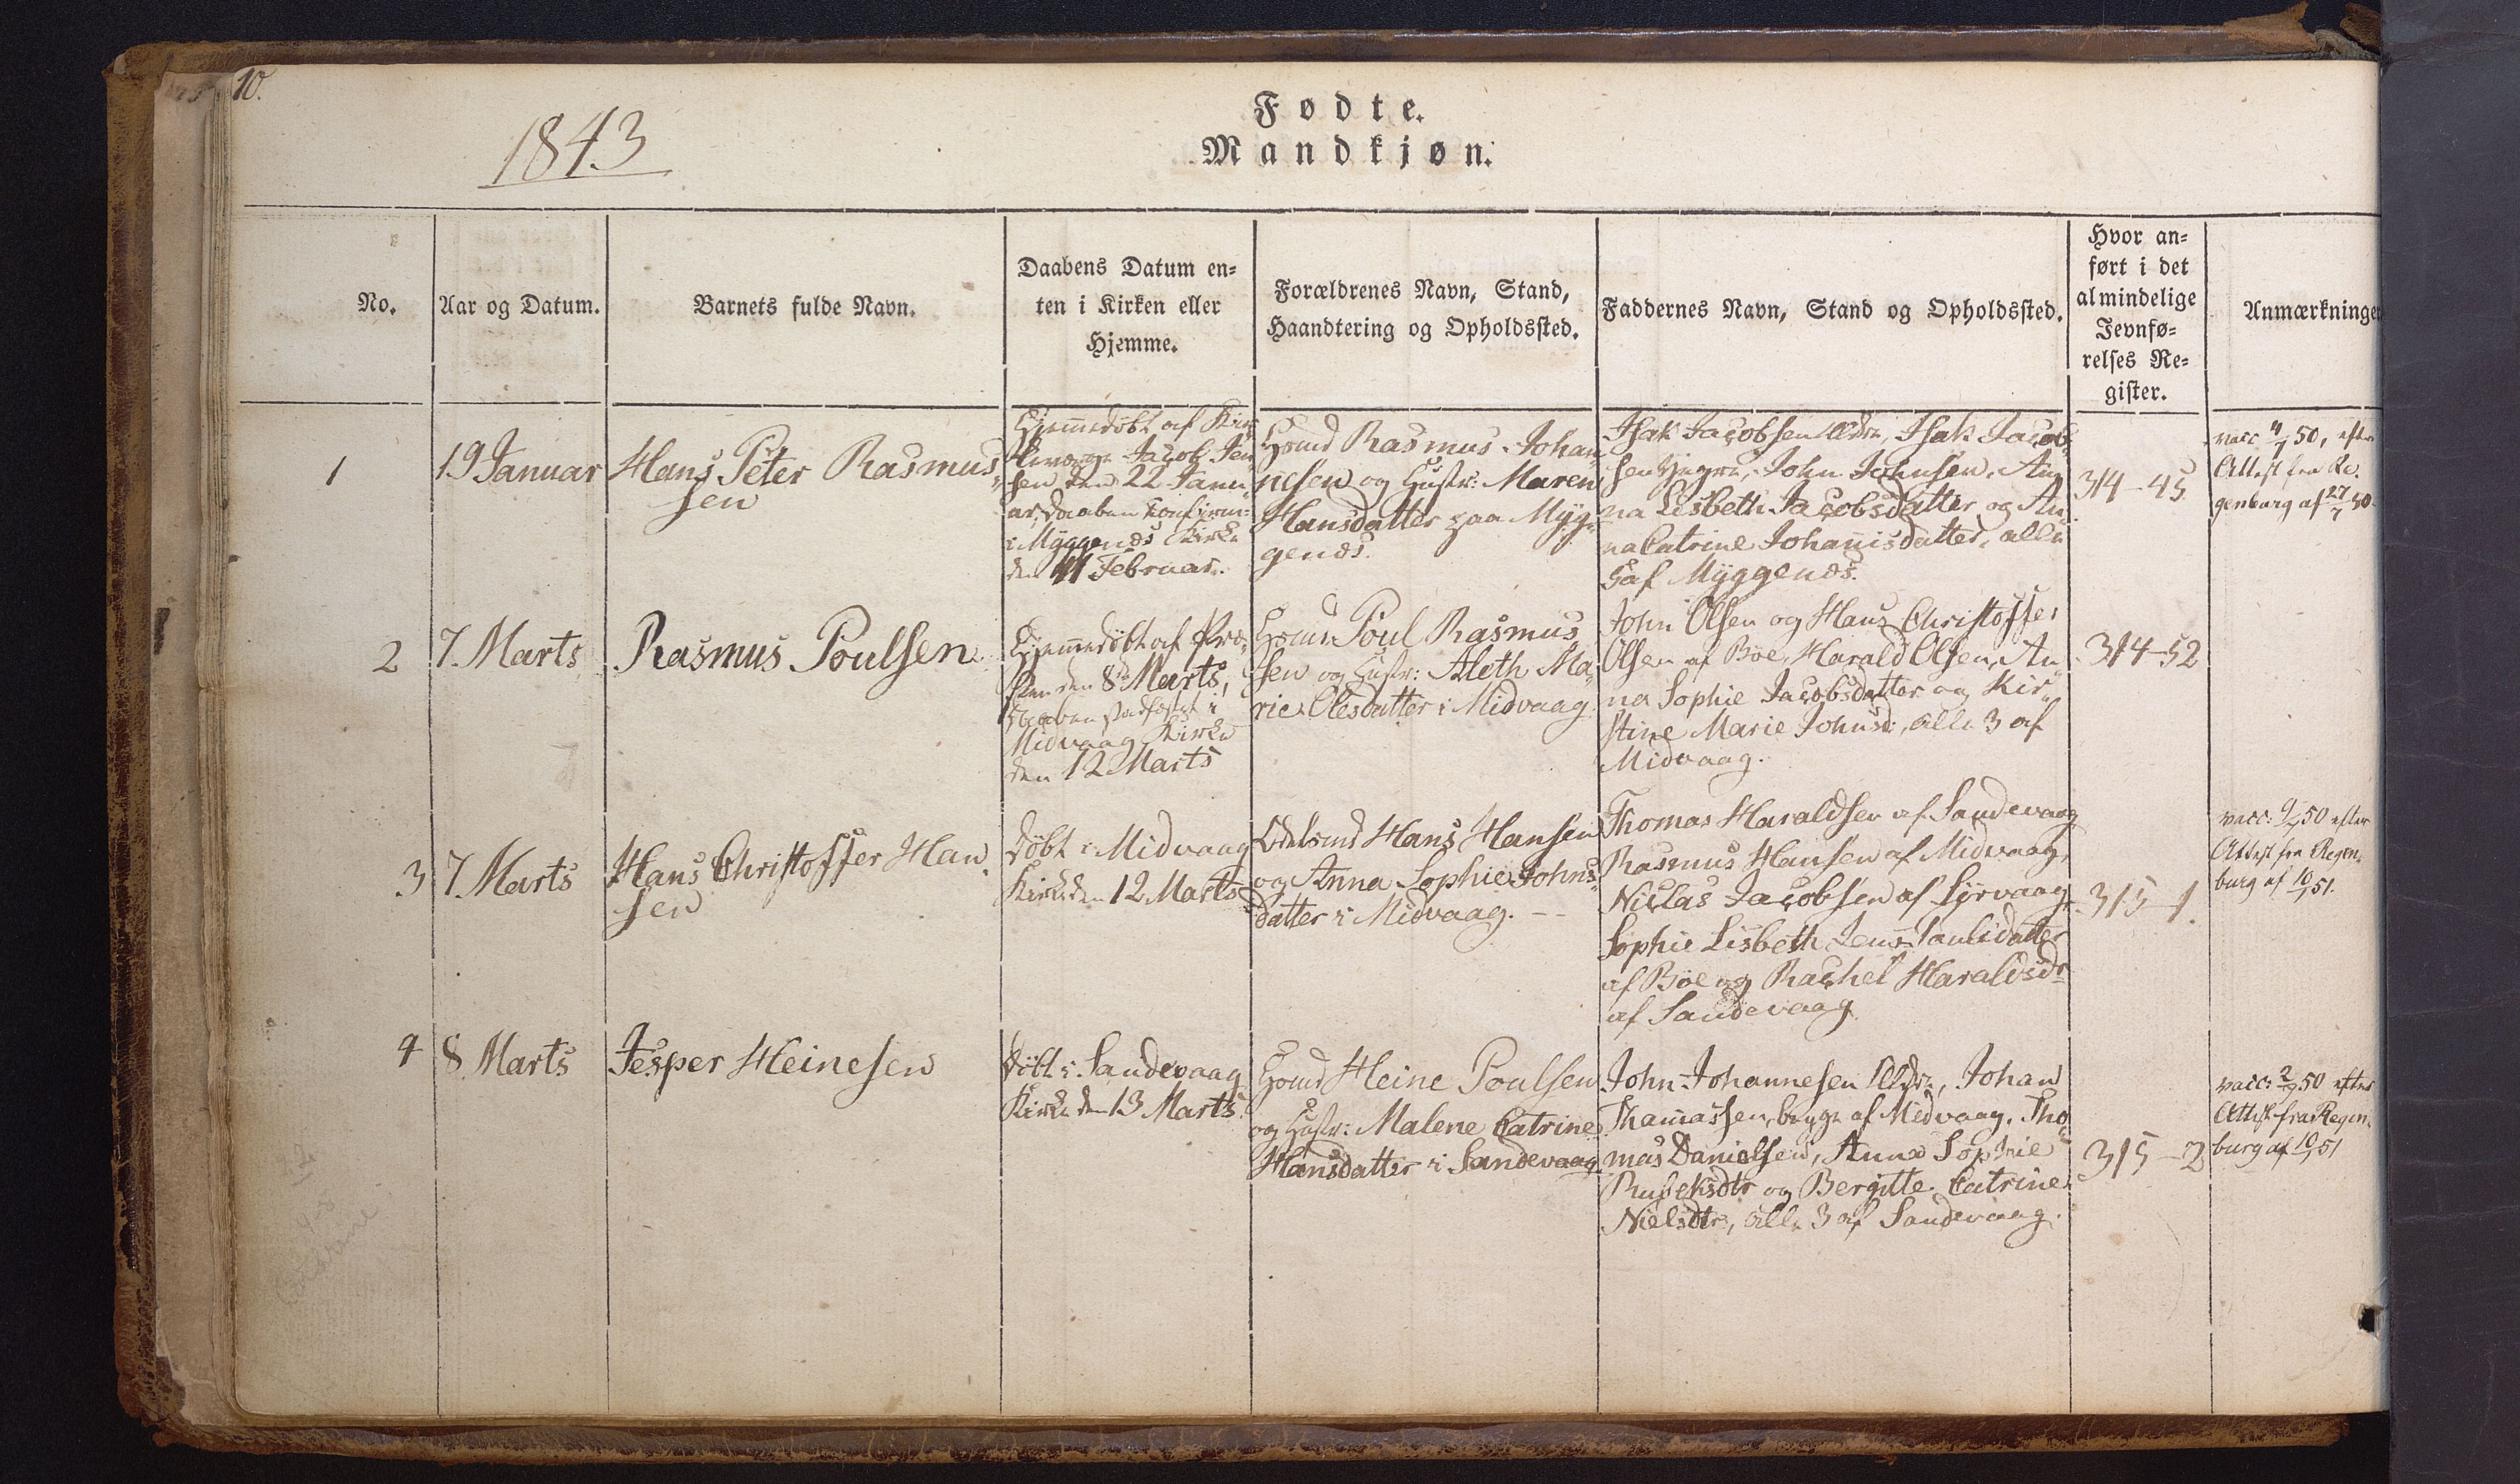 10.
1843
Fødte.
Mandkjøn.
No.
Aar og Datum.
Barnets fulde Navn.
Daabens Datum en-
ten i Kirken eller
Hjemme.
Forældrenes Navn, Stand,
Haandtering og Opholdssted.
Faddernes Navn, Stand og Opholdssted.
Hvor an-
ført i det
almindelige
Jevnfø-
relses Re-
gister.
Anmærkninge
1
19 Januar
Hans Peter Rasmus-
sen
Hjemmedöbt af Kir-
Jacob Jen
sen den 22 Janu-
ar, Daaben confirm:
i Myggenæs Kirke
den 11 Februar.
Hsmd Rasmus Johan-
nesen og Hustr: Maren
Hansdatter paa Myg-
genæs.
Isak Jacobsen Ældre, Isak Jacob-
sen Yngre, John Johnsen, An-
na Lisbeth Jacobsdatter og An-
na Catrine Johannisdatter, alle
5 af Myggenæs.
314-45
vacc 4/7 50, efter
Attest fra Re-
genburg af 27/7 50.
2
7. Marts
Rasmus Poulsen
Hjemmedöbt af Præ-
sten den 8de Marts,
Daaben stadfæstet i
Midvaag Kirke
den 12 Marts
Hsmd Poul Rasmus-
sen og Hustr: Aleth Ma-
rie Olesdatter i Midvaag
John Olsen og Hans Christoffer
Olsen af Böe, Harald Olsen, An-
na Sophie Jacobsdatter og Kir-
stine Marie Johnsd:, alle 3 af
Midvaag.
314-52
3
7. Marts
Hans Christoffer Han-
sen
Döbt i Midvaag
Kirke den 12 Marts
Odelsmd Hans Hansen
og Anna Sophie Johns-
datter i Midvaag. --
Thomas Haraldsen af Sandevaag
Rasmus Hansen af Midvaag,
Niclas Jacobsen af Sörvaag,
Sophie Lisbeth Jens-Paulsdatter
af Böe og Rachel Haraldsdr
af Sandevaag
315-1.
vacc: 50 efter
Attest fra Regen-
burg af 10/1 51.
4
8 Marts
Jesper Heinesen
Döbt i Sandevaag
Kirke den 13 Marts.
Hsmd Heine Poulsen
og Hustr: Malene Catrine
Hansdatter i Sandevaag
John Johannesen Ældre, Johan
Thomassen, begge af Midvaag, Tho-
mas Danielsen, Anna Sophie
og Bergitte Catrine
Nielsdtr, alle 3 af Sandevaag.
315-2
vacc: 50 efter
Attest fra Regen-
burg af 10/1 51